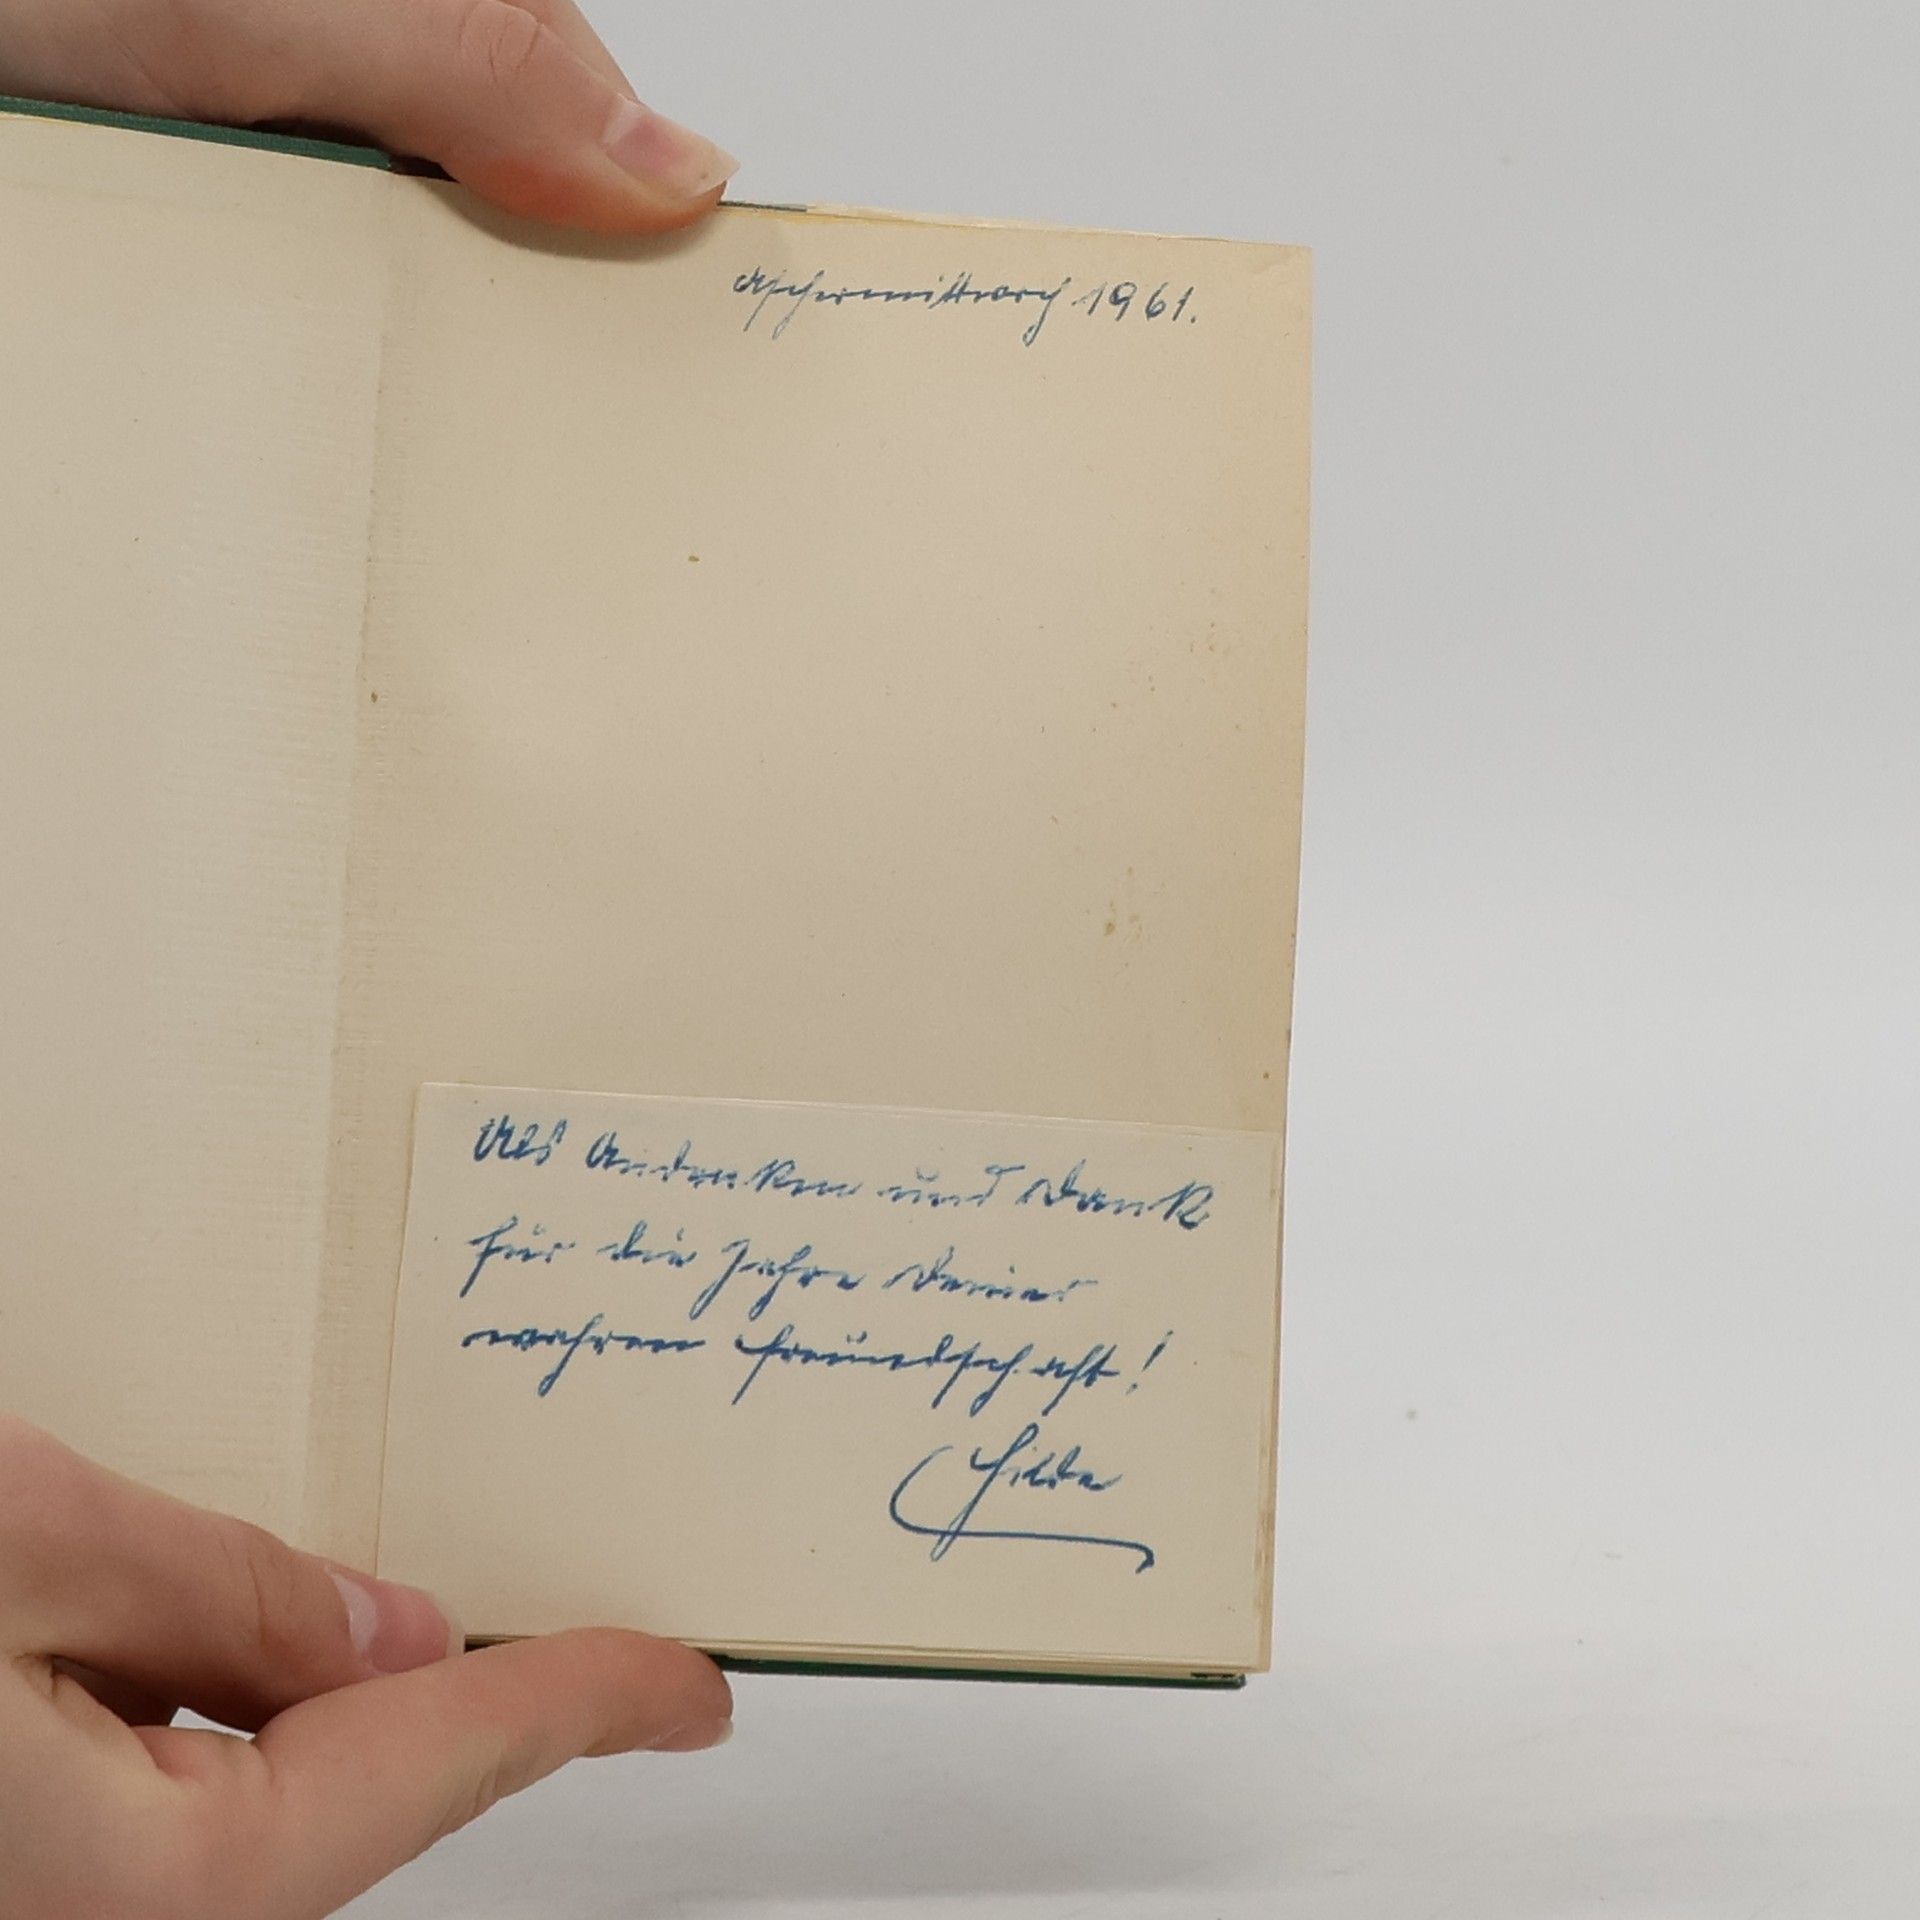 Aschermittwoch 1961.
Als Andenken und Dank
für die Jahre Deiner
wahren Freundschaft!
Hilde